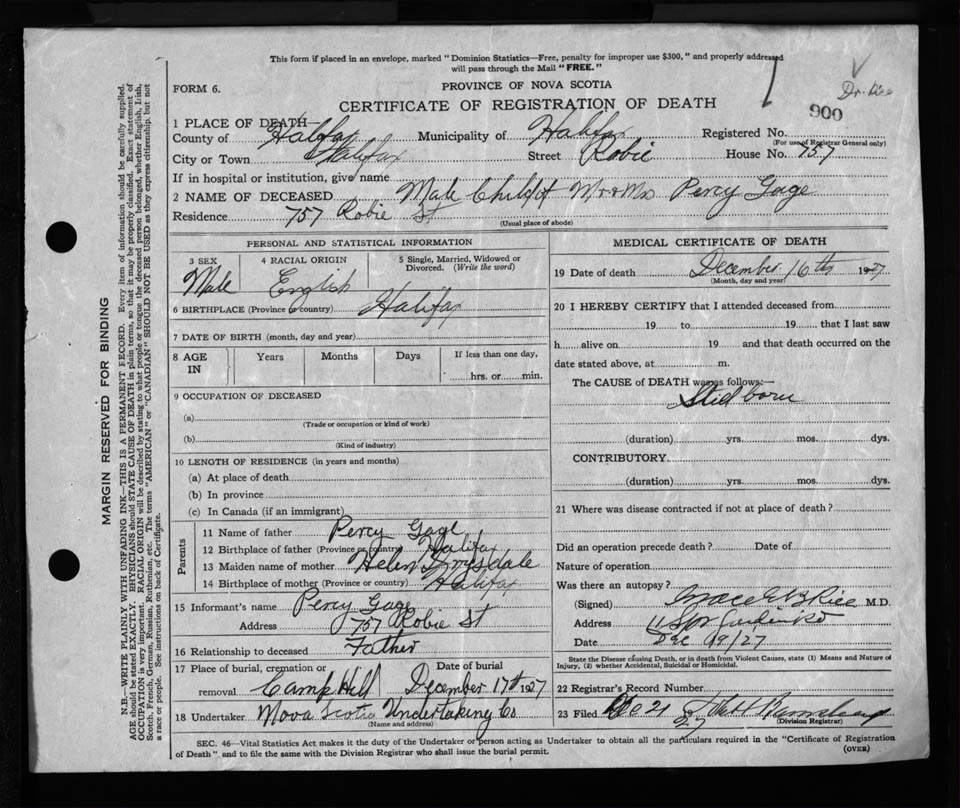 This form if placed in an envelope, marked "Dominion Statistics—Free, penalty for improper use $300," and properly addressed
will pass through the Mail "FREE."
FORM 6.
PROVINCE OF NOVA SCOTIA
Dr.
CERTIFICATE OF REGISTRATION OF DEATH
900
1 PLACE OF DEATH—
County of Halifax Municipality of Halifax Registered No.
(For use of Registrar General only)
City or Town Halifax Street Robie House No. 757
If in hospital or institution, give name
2 NAME OF DECEASED Male Child of Mr & Mrs Percy Gage
Residence 757 Robie St
(Usual place of abode)
PERSONAL AND STATISTICAL INFORMATION
3 SEX 4 RACIAL ORIGIN 5 Single, Married, Widowed or
Divorced. (Write the word)
Male English
6 BIRTHPLACE (Province or country) Halifax
7 DATE OF BIRTH (month, day and year)
8 AGE Years Months Days If less than one day,
IN hrs. or min.
9 OCCUPATION OF DECEASED
(a)
(Trade or occupation or kind of work)
(b)
(Kind of industry)
10 LENGTH OF RESIDENCE (in years and months)
(a) At place of death
(b) In province
(c) In Canada (if an immigrant)
Parents
11 Name of father Percy Gage
12 Birthplace of father (Province or country) Halifax
13 Maiden name of mother Helen Drysdale
14 Birthplace of mother (Province or country) Halifax
15 Informant's name Percy Gage
Address 757 Robie St
16 Relationship to deceased Father
17 Place of burial, cremation or Date of burial
removal Camp Hill December 17th 1927
18 Undertaker Nova Scotia Undertaking Co
(Name and address)
MEDICAL CERTIFICATE OF DEATH
19 Date of death December 16th 1927
(Month, day and year)
20 I HEREBY CERTIFY that I attended deceased from
19 to 19 that I last saw
h alive on 19 and that death occurred on the
date stated above, at m.
The CAUSE of DEATH was as follows:—
Still born
(duration) yrs. mos. dys.
CONTRIBUTORY.
(duration) yrs. mos. dys.
21 Where was disease contracted if not at place of death?
Did an operation precede death? Date of
Nature of operation
Was there an autopsy?
(Signed) Grace Rice M.D.
Address
Date Dec 19/27
State the Disease causing Death, or in death from Violent Causes, state (1) Means and Nature of
Injury, (2) whether Accidental, Suicidal or Homicidal.
22 Registrar's Record Number
23 Filed Dec 21
27
(Division Registrar)
SEC. 46—Vital Statistics Act makes it the duty of the Undertaker or person acting as Undertaker to obtain all the particulars required in the "Certificate of Registration
of Death" and to file the same with the Division Registrar who shall issue the burial permit.
(OVER)
MARGIN RESERVED FOR BINDING
N.B.—WRITE PLAINLY WITH UNFADING INK—THIS IS A PERMANENT RECORD. Every item of information should be carefully supplied.
AGE should be stated EXACTLY. PHYSICIANS should STATE CAUSE OF DEATH in plain terms, so that it may be properly classified. Exact statement of
OCCUPATION is very important. RACIAL ORIGIN will be described by stating to what people or tongue the deceased person belonged, whether English, Irish,
Scotch, French, German, Russian, Ruthenian, etc. The terms "AMERICAN" or "CANADIAN" SHOULD NOT BE USED as they express citizenship, but not
a race or people. See instructions on back of Certificate.